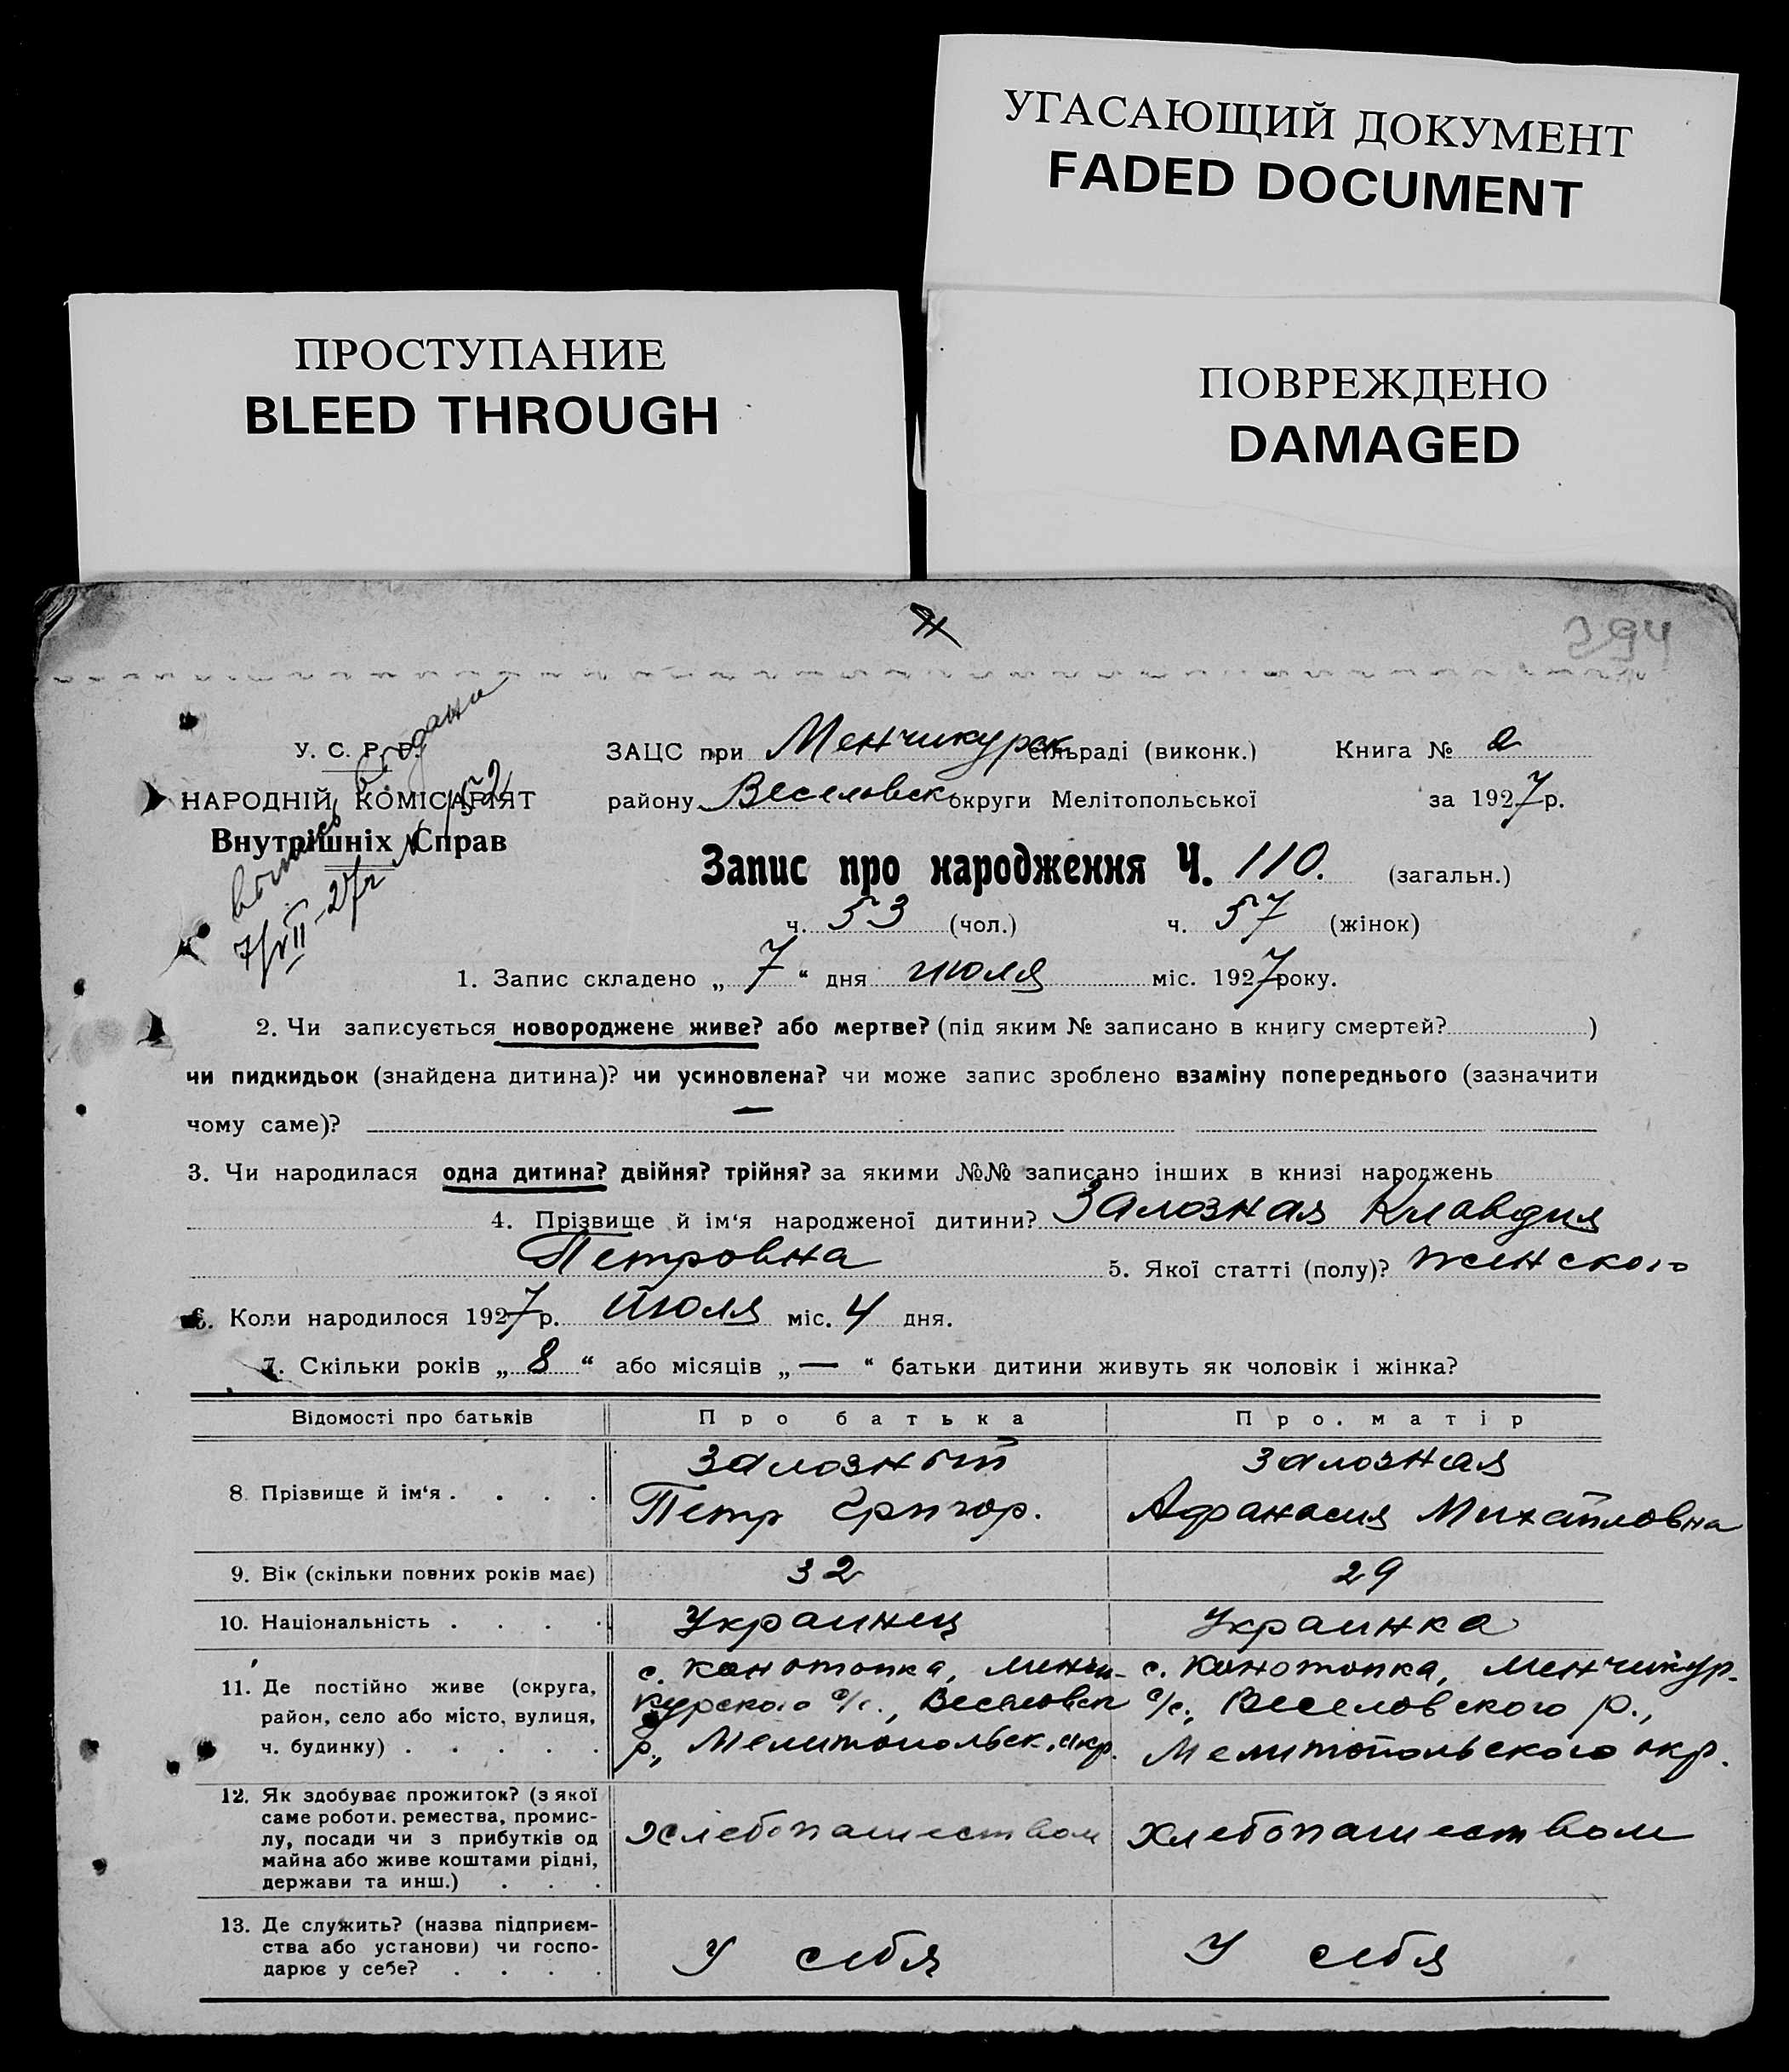 УГАСАЮЩИЙ ДОКУМЕНТ
FADED DOCUMENT
ПРОСТУПАНИЕ
BLEED THROUGH
ПОВРЕЖДЕНО
DAMAGED
394
У. С. Р. Р.
НАРОДНІЙ КОМІСАРІЯТ
Внутрішніх Справ
выпись выдана
7/VII-27г № 152
ЗАЦС при Менчикурск сільраді (виконк.) Книга № 2
району Веселовск округи Мелітопольської за 1927 р.
Запис про народження Ч. 110. (загальн.)
ч. 53 (чол.) ч. 57 (жінок)
1. Запис складено „ 7 “ дня июля міс. 1927 року.
2. Чи записується новороджене живе? або мертве? (під яким № записано в книгу смертей? )
чи пидкидьок (знайдена дитина)? чи усиновлена? чи може запис зроблено взаміну попереднього (зазначити
чому саме)? —
3. Чи народилася одна дитина? двійня? трійня? за якими №№ записано інших в книзі народжень
4. Прізвище й ім‘я народженої дитини? Залозная Клавдия
Петровна 5. Якої статті (полу)? женского
6. Коли народилося 1927 р. июля міс. 4 дня.
7. Скільки років „ 8 “ або місяців „ — “ батьки дитини живуть як чоловік і жінка?
Відомості про батьків Про батька Про. матір
8. Прізвище й ім‘я . . . . Залозный Залозная
Петр Григор. Афанасия Михайловна
9. Вік (скільки повних років має) 32 29
10. Національність . . . . Украинец Украинка
11. Де постійно живе (округа, с. Конотопка, Менчи- с. Конотопка, Менчикур.
район, село або місто, вулиця, курского с/с., Веселовск с/с., Веселовского р.,
ч. будинку) . . . . . р., Мелитопольск. окр. Мелитопольского окр.
12. Як здобуває прожиток? (з якої
саме роботи. ремества, промис-
лу, посади чи з прибутків од хлебопашеством хлебопашеством
майна або живе коштами рідні,
держави та инш.) . . .
13. Де служить? (назва підприєм-
ства або установи) чи госпо- У себя У себя
дарює у себе? . . . .